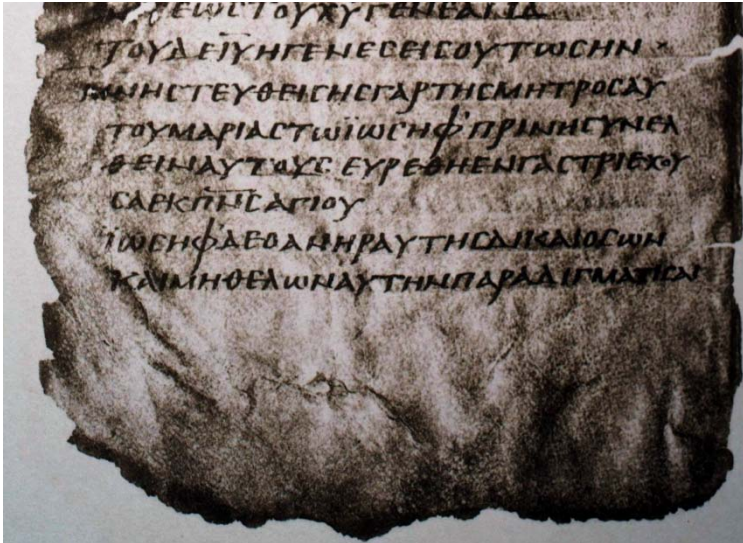 ΕΩCΤΟΥΧ̅Υ̅ΓΕΝΕΑΙΙΔ
ΤΟΥΔΕΙ̅Υ̅ΗΓΕΝΕCΕΙCΟΥΤΩCΗΝ
ΜΝΗCΤΕΥΘΕΙCΗCΓΑΡΤΗCΜΗΤΡΟCΑΥ
ΤΟΥΜΑΡΙΑCΤΩΪΩCΗΦ’ΠΡΙΝΗCΥΝΕΛ
ΘΕΙΝΑΥΤΟΥC·ΕΥΡΕΘΗΕΝΓΑCΤΡΙΕΧΟΥ
CΑΕΚΠ̅Ν̅C̅ΑΓΙΟΥ
ΪΩCΗΦΔΕΟΑΝΗΡΑΥΤΗCΔΙΚΑΙΟCΩΝ
ΚΑΙΜΗΘΕΛΩΝΑΥΤΗΝΠΑΡΑΔΙΓΜΑΤΙCΑΙ